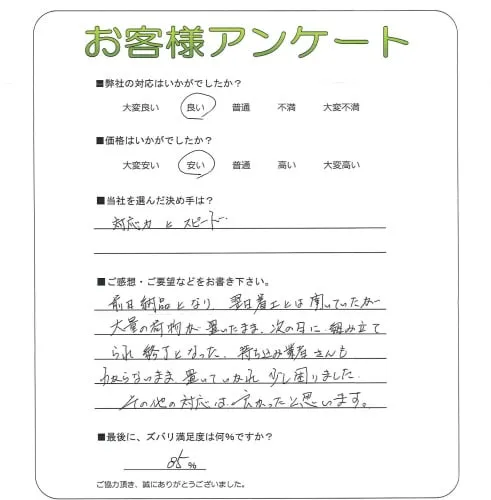 お客様アンケート
■弊社の対応はいかがでしたか？
大変良い 良い 普通 不満 大変不満
■価格はいかがでしたか？
大変安い 安い 普通 高い 大変高い
■当社を選んだ決め手は？
対応力とスピード
■ご感想・ご要望などをお書き下さい。
前日納品となり、翌日着工とは聞いていたが
大量の荷物が置いたまま、次の日に組み立て
られ終了となった。持ち込み業者さんも
わからないまま置いていかれ少し困りました
その他の対応は良かったと思います。
■最後に、ズバリ満足度は何%ですか？
85%
ご協力頂き、誠にありがとうございました。